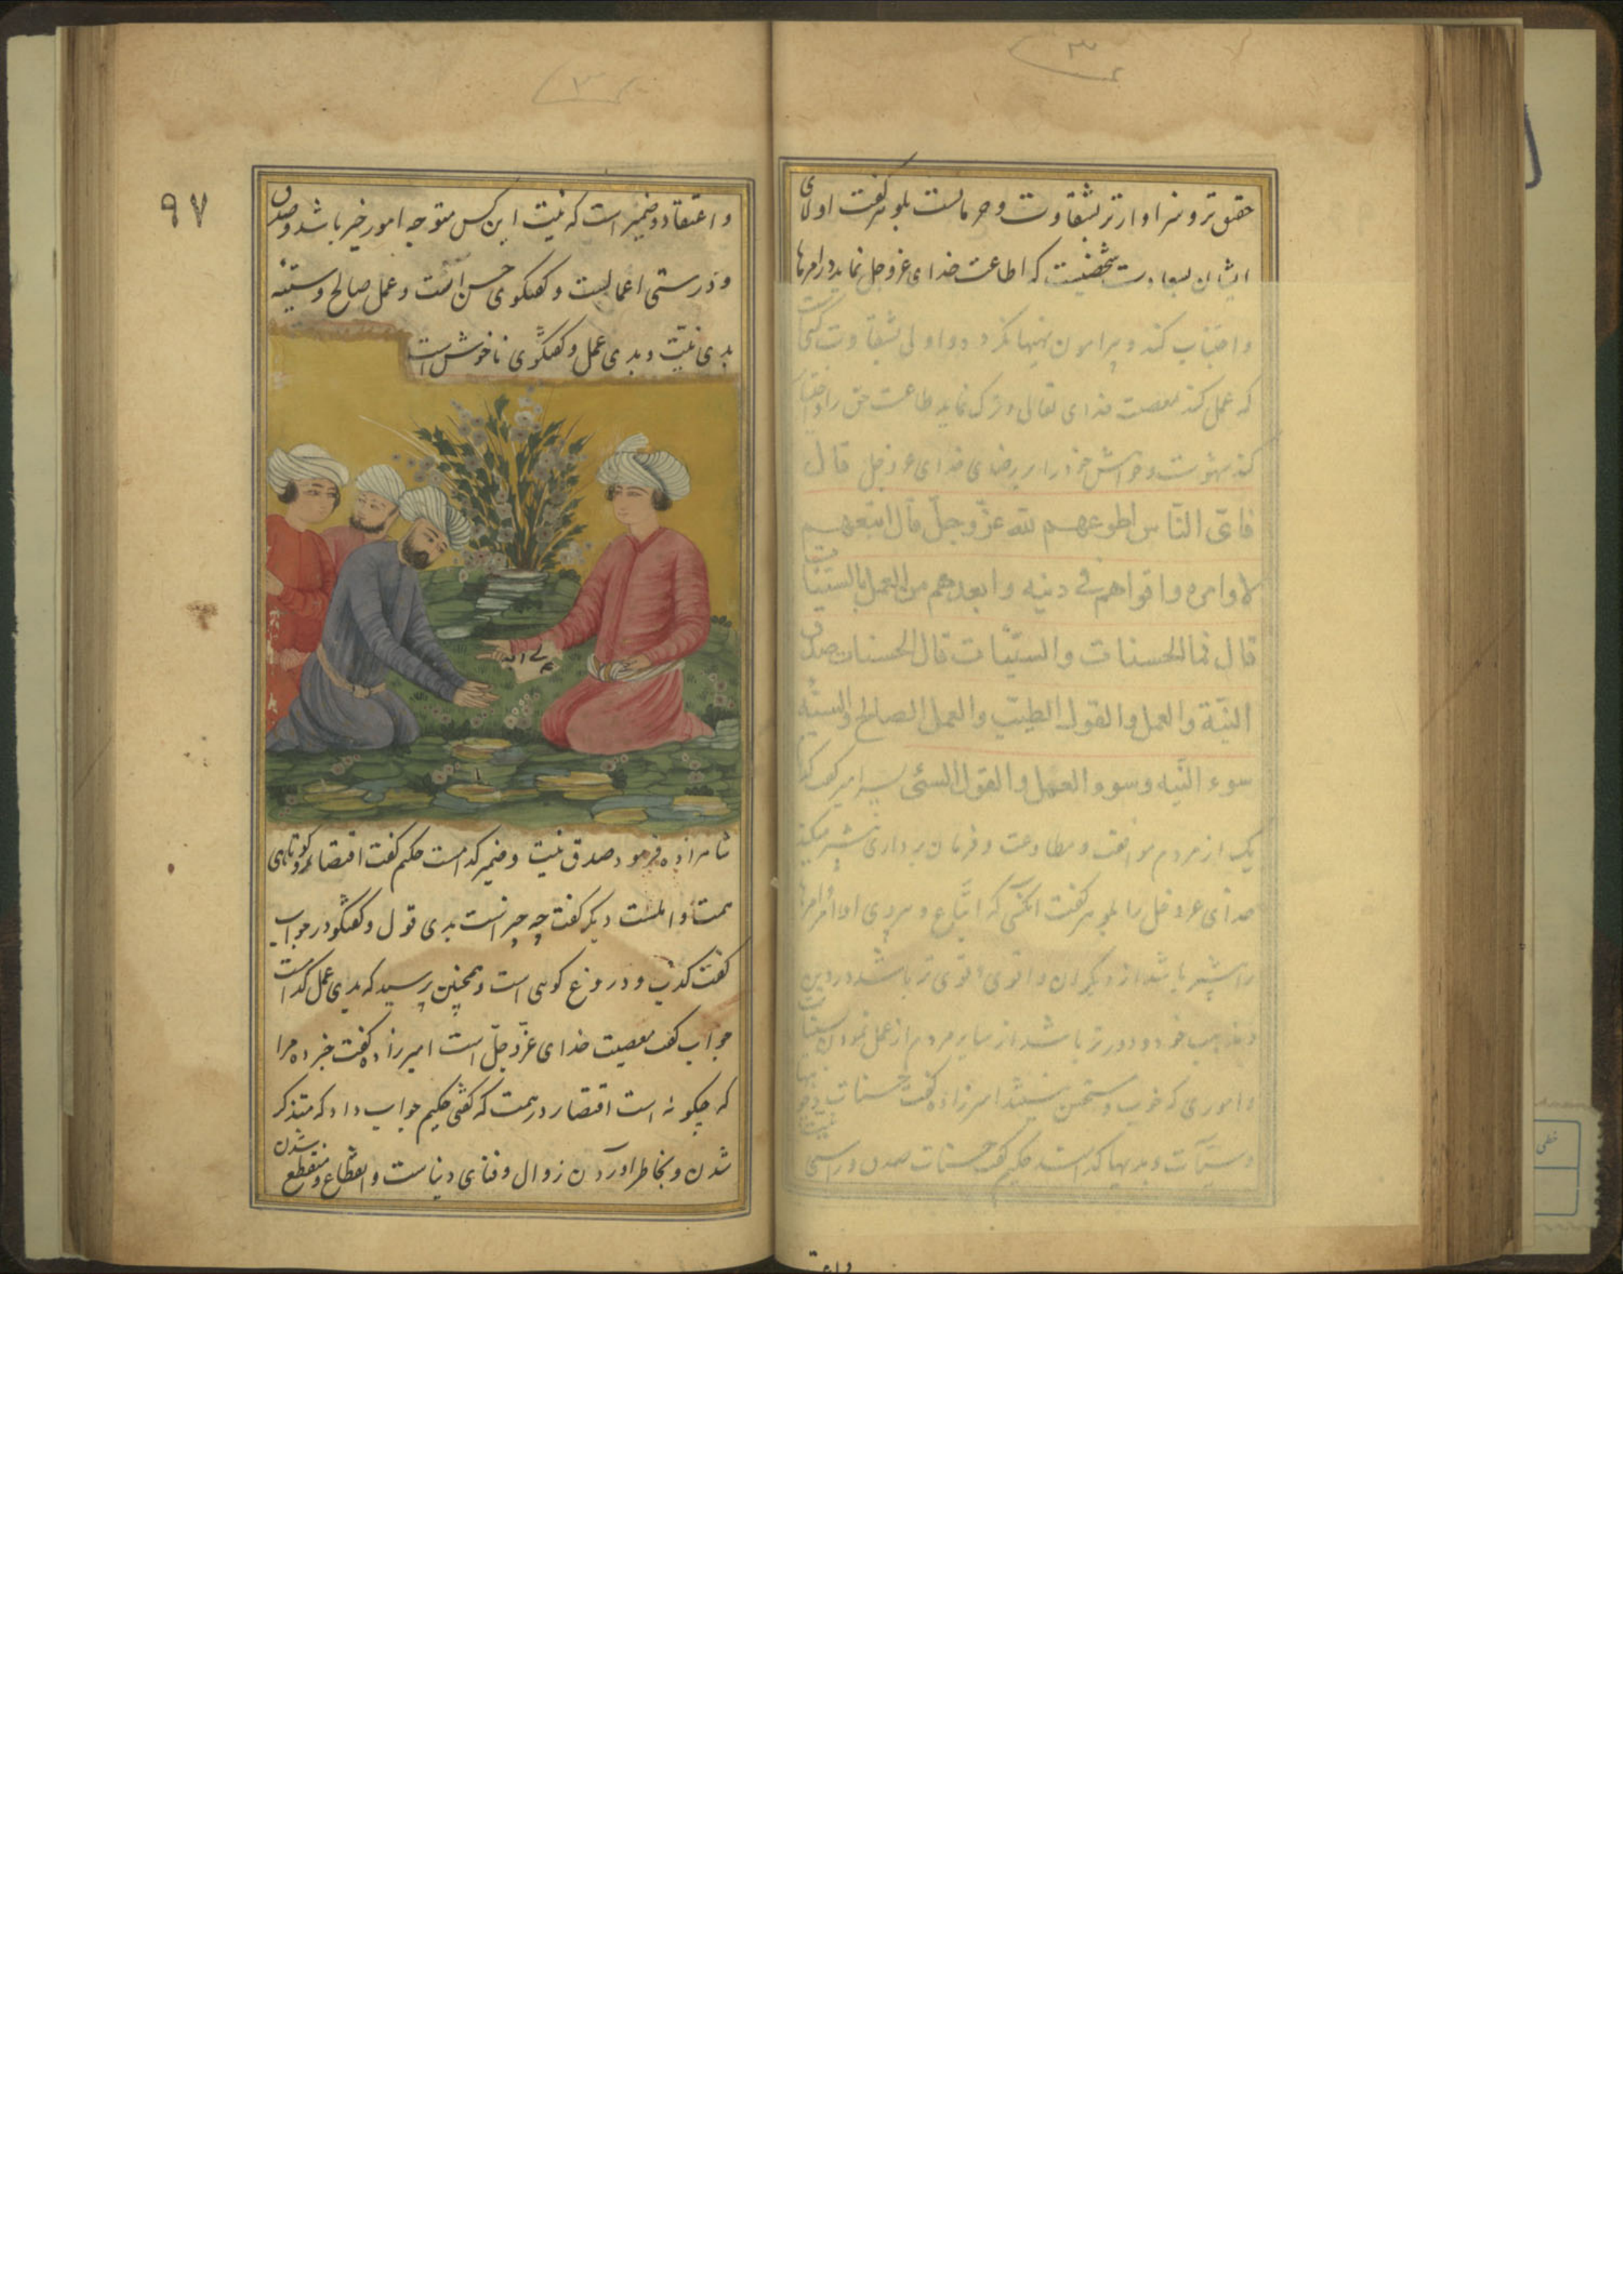 حقیق‌تر و سزاوارتر بشقاوت و حرمانست بلوهر گفت اولای
ایشان بسعادت شخصیست که اطاعت خدای عزوجل نماید در امرها
و اجتناب کند و پیرامون نهیها نگردد و اولی بشقاوت کسی است
که عمل کند بمعصیت خدای تعالی و ترک نماید طاعت حق را و اختیار
کند شهوت و خواهش خود را بر رضای خدای عزوجل قال
فایّ النّاس اطوعهم لله عزّ وجلّ قال اتبعهم
لاوامره و اقواهم فی دینه و ابعدهم من العمل بالسیّئات
قال فما الحسنات و السیّئات قال الحسنات صدق
النیّة و العمل و القول الطیّب و العمل الصالح و السیئه
سوء النیه و سوء العمل و القول السئی پسر امیر گفت کدام
یک از مردم موافقت و مطاوعت و فرمان برداری بیشتر میکند
خدای عزوجل را بلوهر گفت آنکسی که اتّباع و پیروی اوامر
را بیشتر باشد از دیگران و اقوی و قوی‌تر باشد در دین
و مذهب خود و دورتر باشد از سایر مردم از عمل نمودن سیئات
و اموری که خوب و مستحسن نیستند امیرزاده گفت حسنات
و سیّئات و بدیها کدامند حکیم گفت حسنات صدق و راستی
۹۷
و اعتقاد و ضمیر است که نیت این کس متوجه امور خیر باشد و صدق
و درستی اعمالست و گفتگوی حسن است و عمل صالح و سیّئه
بدی نیّت و بدی عمل و گفتگوی ناخوش است
شاهزاده فرمود صدق نیت و ضمیر کدامست حکیم گفت اقتصار و کوتاهی
همت دیگر گفت چه چیز است بدی قول و گفتگو در جواب
گفت کذب و دروغ گویی است و همچنین پرسید که بدی عمل کدام است
جواب گفت معصیت خدای عزّ و جلّ است امیرزاده گفت خبر ده مرا
که چگونه است اقتصار در همت که گفتی حکیم جواب داد که متذکر
شدن و بخاطر آوردن زوال و فنای دنیاست و انقطاع و منقطع شدن